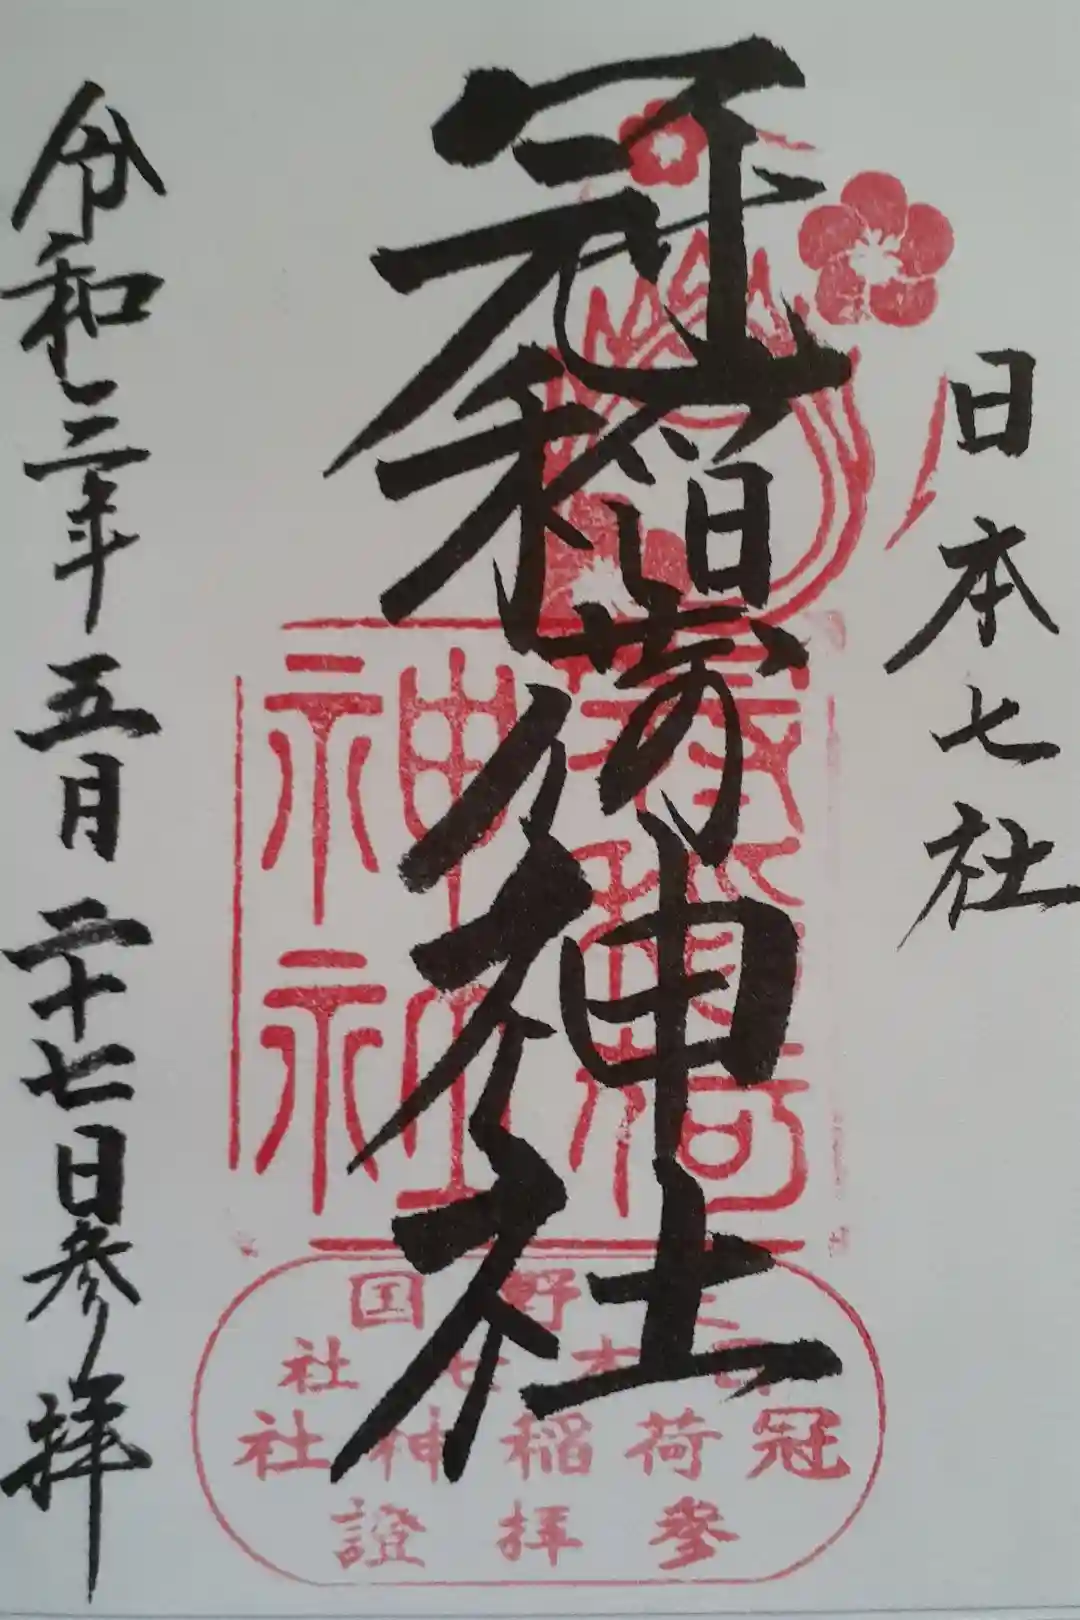 日本七社
冠稲荷神社
令和三年五月二十七日参拝
冠稲荷神社
野国
日本七社
冠荷稲神社
參拝證